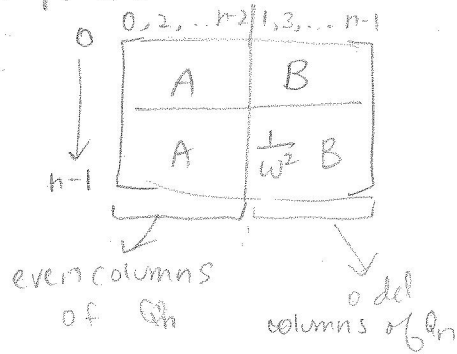 0, 2, .. n-2 1, 3, ... n-1
0
A B
A 1/ω² B
n-1
even columns of Qn
odd columns of Qn